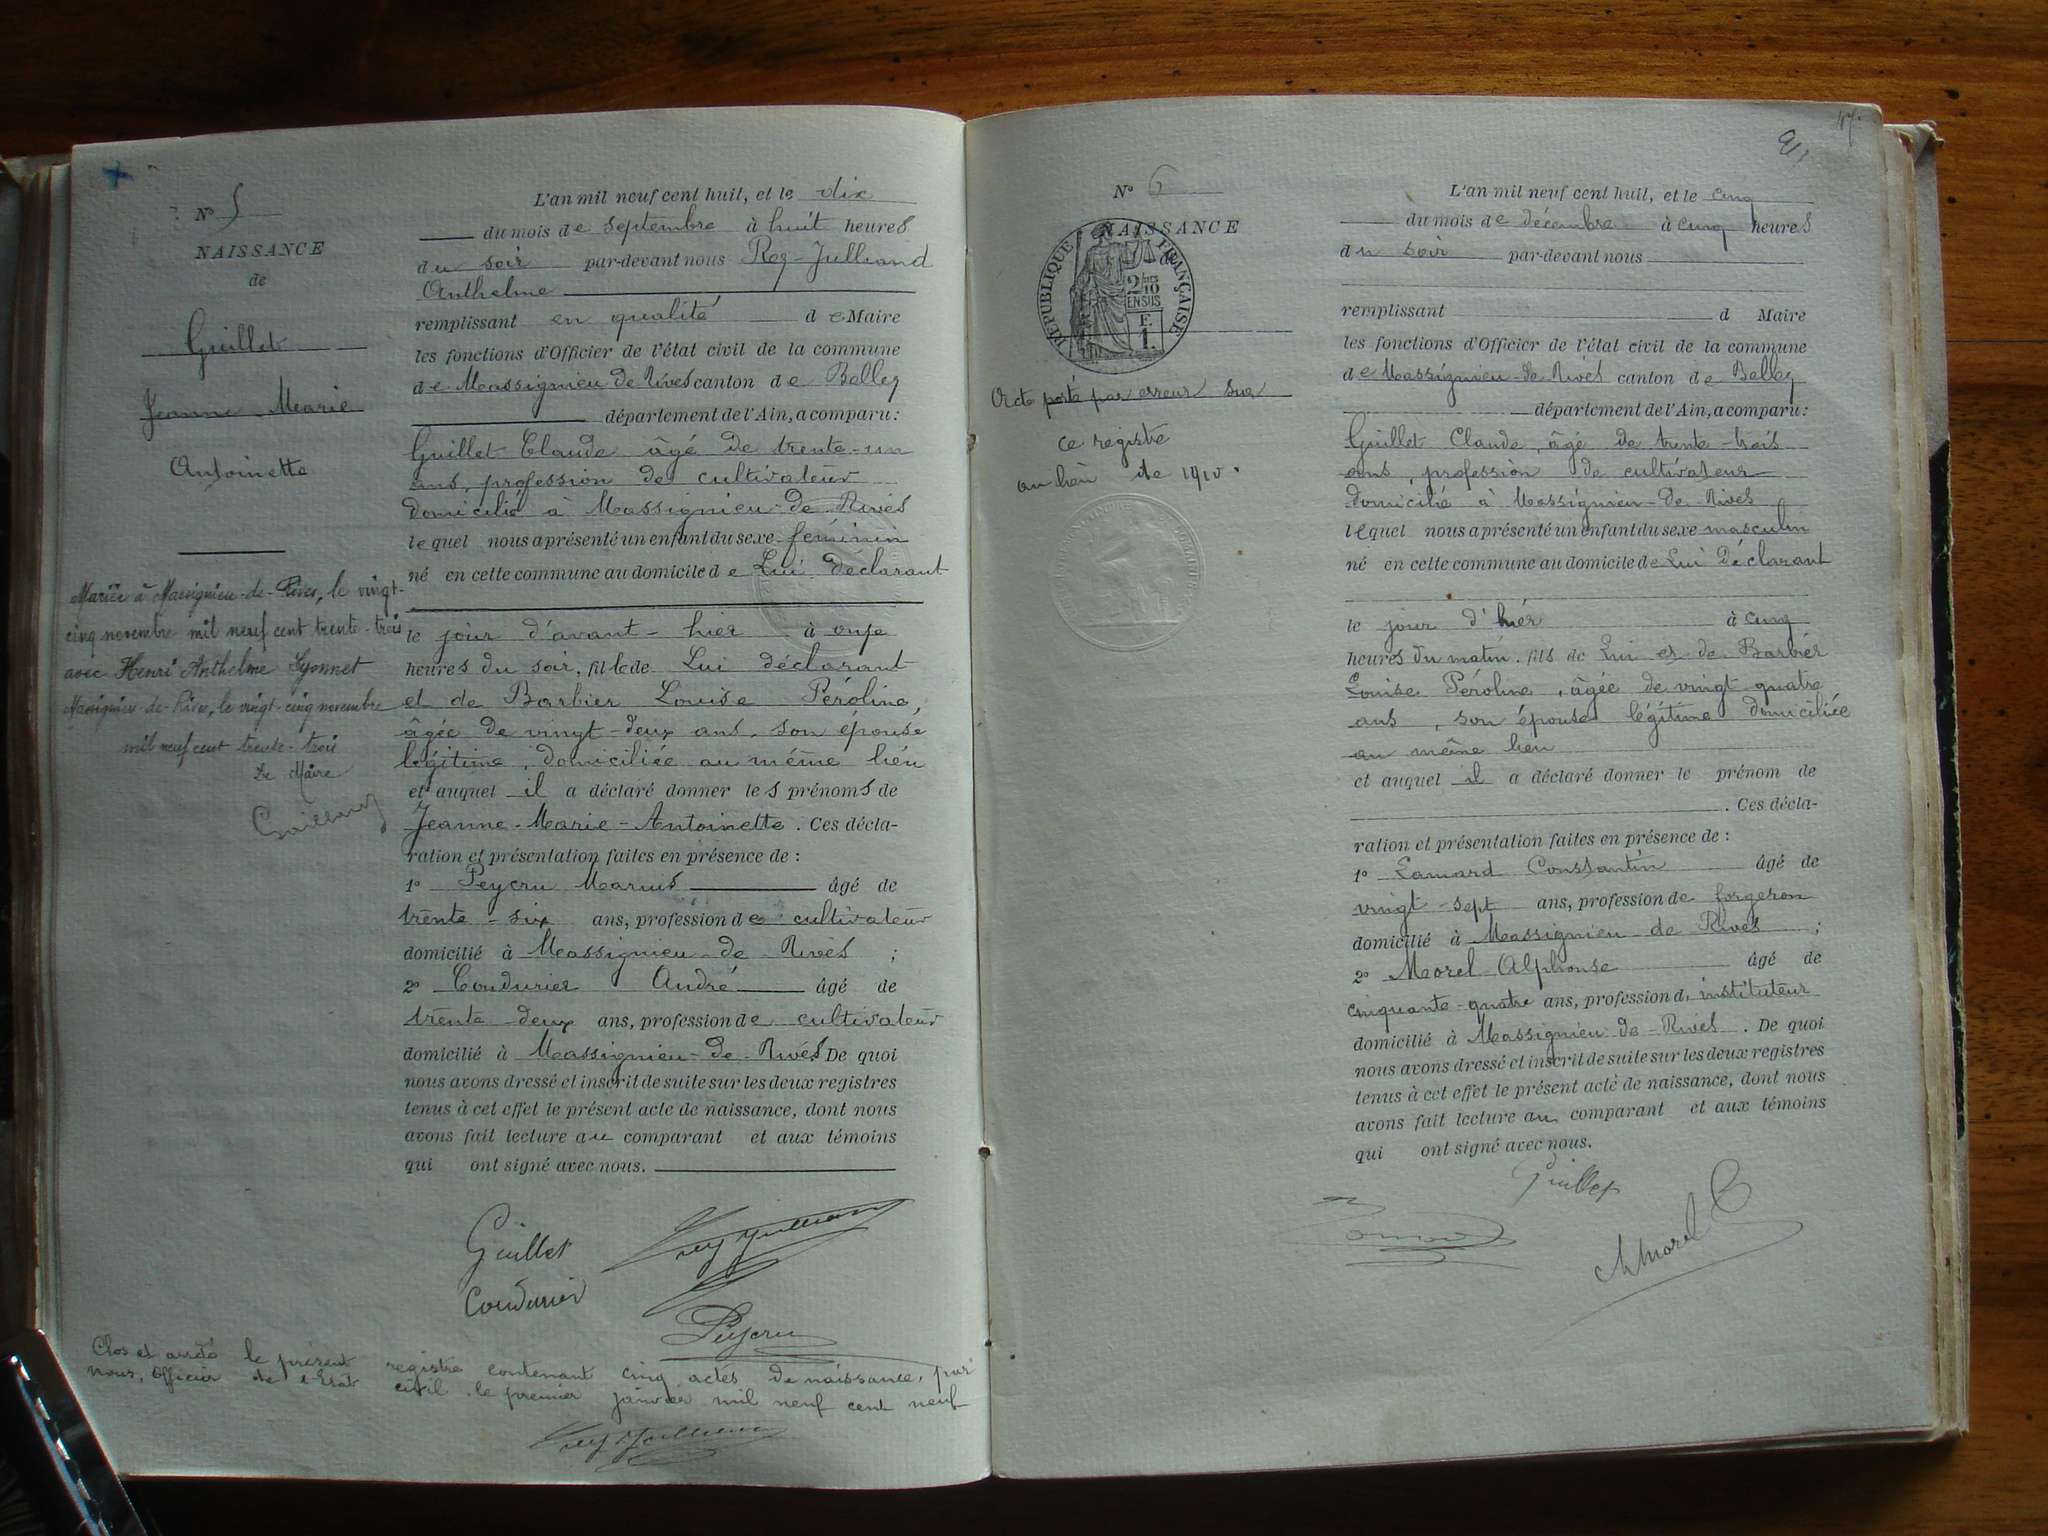 N° 5
NAISSANCE
de
Guillet
Jeanne Marie
Antoinette
Mariée à Massignieu-de-Rives, le vingt-
cinq novembre mil neuf cent trente-trois
avec Henri Anthelme Lyonnet
Massignieu-de-Rives, le vingt-cinq novembre
mil neuf cent trente-trois
Le Maire
L'an mil neuf cent huit, et le dix
du mois de septembre à huit heures
du soir par-devant nous Rey-Julliand
Anthelme
remplissant en qualité de Maire
les fonctions d'Officier de l'état civil de la commune
de Massignieu de Rives canton de Belley
département de l'Ain, a comparu :
Guillet Claude âgé de trente-un
ans, profession de cultivateur
domicilié à Massignieu-de-Rives
lequel nous a présenté un enfant du sexe féminin
né en cette commune au domicile de Lui déclarant
le jour d'avant-hier à onze
heures du soir, fille de Lui déclarant
et de Barbier Louise Péroline,
âgée de vingt-deux ans, son épouse
légitime, domiciliée au même lieu
et auquel il a déclaré donner les prénoms de
Jeanne-Marie-Antoinette. Ces décla-
ration et présentation faites en présence de :
1° Peycru Marius âgé de
trente-six ans, profession de cultivateur
domicilié à Massignieu-de-Rives ;
2° Coudurier André âgé de
trente deux ans, profession de cultivateur
domicilié à Massignieu-de-Rives. De quoi
nous avons dressé et inscrit de suite sur les deux registres
tenus à cet effet le présent acte de naissance, dont nous
avons fait lecture au comparant et aux témoins
qui ont signé avec nous.
Guillet Rey Julliand
Coudurier
Peycru
Clos et arrêté le présent registre contenant cinq actes de naissance, par
nous, Officier de l'Etat civil le premier janvier mil neuf cent neuf
Rey Julliand
47
N° 6
NAISSANCE
de
RÉPUBLIQUE FRANÇAISE
2/10
EN SUS
F.
1.
Acte porté par erreur sur
ce registre
au lieu de 1910.
L'an mil neuf cent huit, et le cinq
du mois de décembre à cinq heures
du soir par-devant nous
remplissant d Maire
les fonctions d'Officier de l'état civil de la commune
de Massignieu-de-Rives canton de Belley
département de l'Ain, a comparu :
Guillet Claude, âgé de trente-trois
ans, profession de cultivateur
domicilié à Massignieu-de-Rives
lequel nous a présenté un enfant du sexe masculin
né en cette commune au domicile de Lui Déclarant
le jour d'hier à cinq
heures du matin. fils de Lui et de Barbier
Louise Péroline, âgée de vingt quatre
ans, son épouse légitime domiciliée
au même lieu
et auquel il a déclaré donner le prénom de
. Ces décla-
ration et présentation faites en présence de :
1° Lamard Constantin âgé de
vingt-sept ans, profession de forgeron
domicilié à Massignieu-de Rives ;
2° Morel Alphonse âgé de
cinquante-quatre ans, profession d. instituteur
domicilié à Massignieu-de-Rives. De quoi
nous avons dressé et inscrit de suite sur les deux registres
tenus à cet effet le présent acte de naissance, dont nous
avons fait lecture au comparant et aux témoins
qui ont signé avec nous.
Guillet
Morel